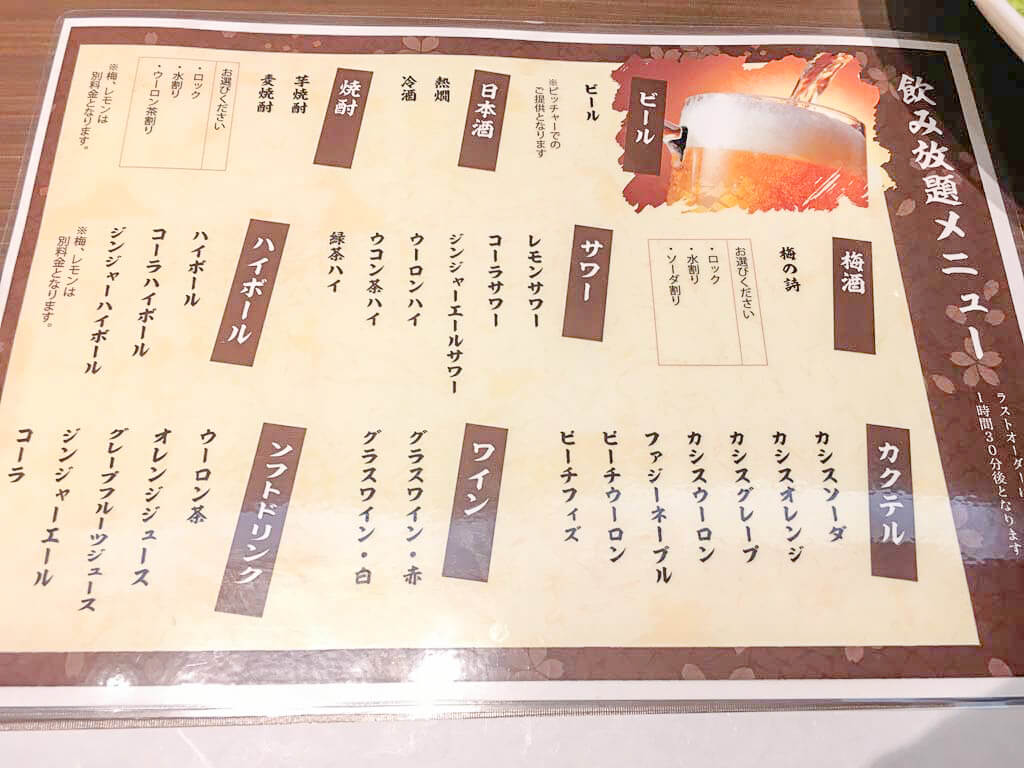 飲み放題メニュー
ラストオーダーは
1時間30分後となります
ビール
ビール
※ピッチャーでの
ご提供となります
日本酒
熱燗
冷酒
焼酎
芋焼酎
麦焼酎
お選びください
・ロック
・水割り
・ウーロン茶割り
※梅、レモンは
別料金となります。
梅酒
梅の詩
お選びください
・ロック
・水割り
・ソーダ割り
サワー
レモンサワー
コーラサワー
ジンジャーエールサワー
ウーロンハイ
ウコン茶ハイ
緑茶ハイ
ハイボール
ハイボール
コーラハイボール
ジンジャーハイボール
※梅、レモンは
別料金となります。
カクテル
カシスソーダ
カシスオレンジ
カシスグレープ
カシスウーロン
ファジーネーブル
ピーチウーロン
ピーチフィズ
ワイン
グラスワイン・赤
グラスワイン・白
ソフトドリンク
ウーロン茶
オレンジジュース
グレープフルーツジュース
ジンジャーエール
コーラ